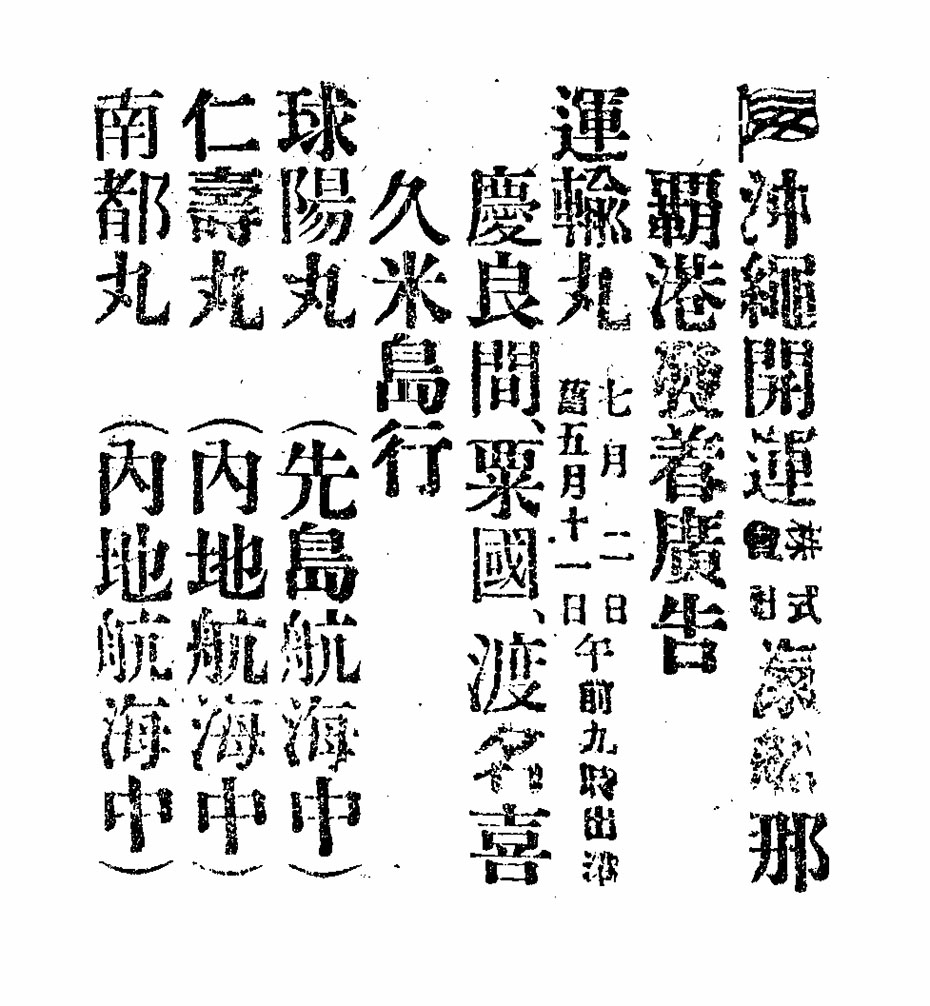 沖繩開運株式會社滊船那
覇港發着廣告
運輸丸 七月二日 舊五月十一日 午前九時出港
慶良間、粟國、渡名喜
久米島行
球陽丸 （先島航海中）
仁壽丸 （內地航海中）
南都丸 （內地航海中）